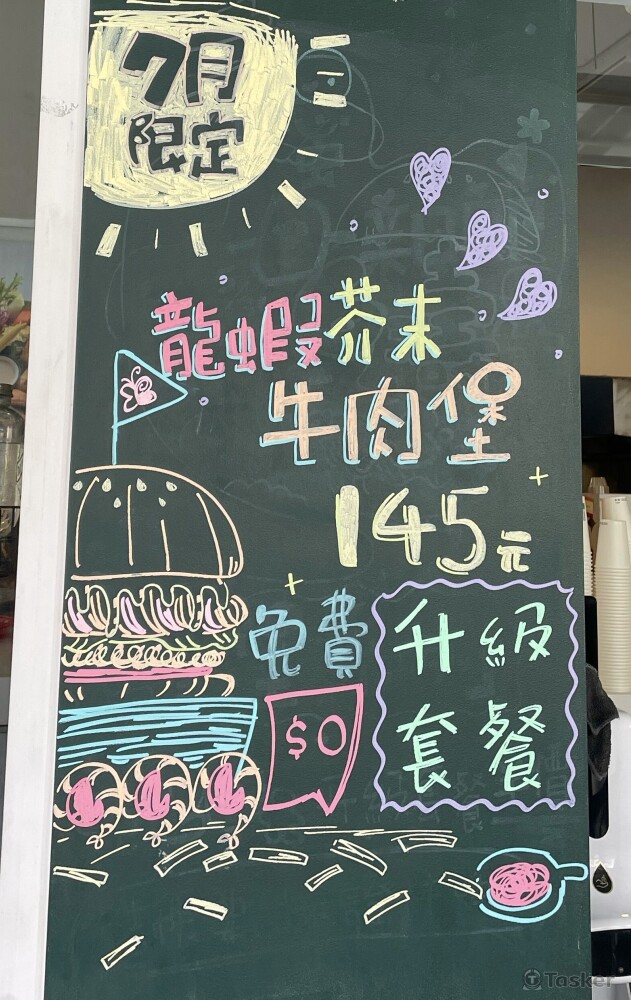 7月
限定
龍蝦芥末
牛肉堡
145元
免費
$0
升級
套餐
Tasker